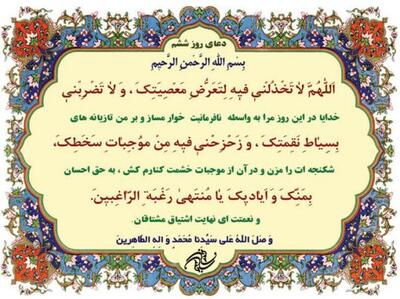 دعای روز ششم
بِسْمِ اللهِ الرَّحْمنِ الرَّحیمِ
اَللّهُمَّ لا تَخْذُلْنی فیهِ لِتَعَرُّضِ مَعْصِیَتِکَ ، وَ لا تَضْرِبْنی
خدایا در این روز مرا به واسطه نافرمانیت خوار مساز و بر من تازیانه های
بِسِیاطِ نَقِمَتِکَ ، وَ زَحْزِحْنی فیهِ مِنْ مُوجِباتِ سَخَطِکَ،
شکنجه ات را مزن و در آن از موجبات خشمت کنارم کش ، به حق احسان
بِمَنِّکَ وَ اَیادیکَ یا مُنْتَهی رَغْبَةِ الرّاغِبینَ.
و نعمتت ای نهایت اشتیاق مشتاقان.
وَ صَلَ اللهُ عَلی سَیِّدنا مُحَمَد وَ اله الطاهرین